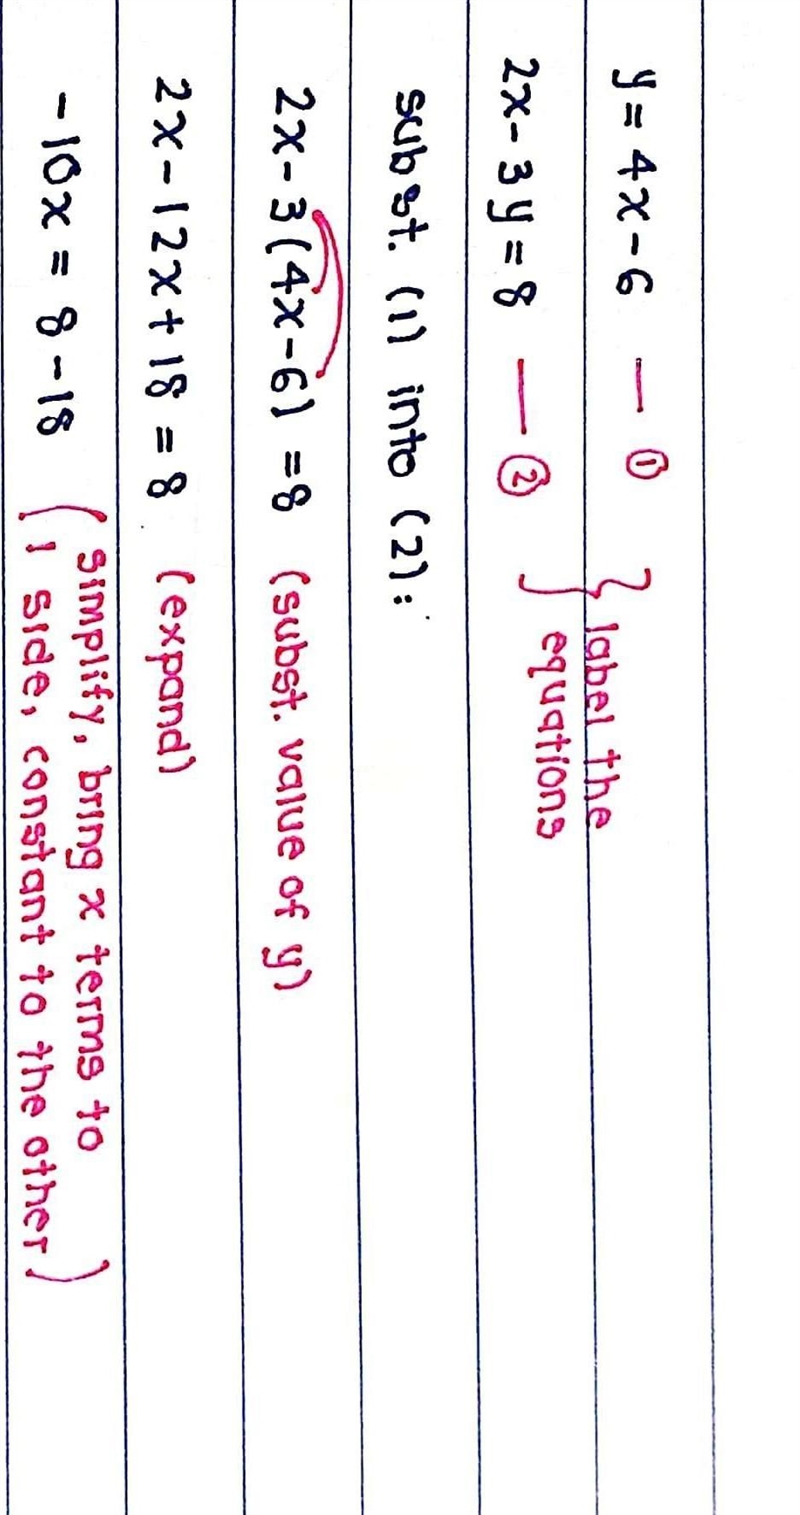 y = 4x - 6 — ①
2x - 3y = 8 — ②
} label the
equations
subst. (1) into (2):
2x - 3(4x - 6) = 8 (subst. value of y)
2x - 12x + 18 = 8 (expand)
-10x = 8 - 18 (simplify, bring x terms to
1 side, constant to the other)